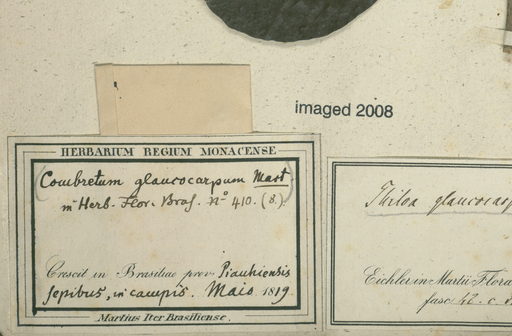 imaged 2008
HERBARIUM REGIUM MONACENSE
(Combretum glaucocarpum Mart.
in Herb. Flor. Bras. No 410. (8.)
Crescit in Brasiliae prov. Piauhiensis
sepibus, in campis. Majo 1819.
Martius Iter Brasiliense.
Thiloa glaucocarp
Eichler in Martii Flora
fasc.